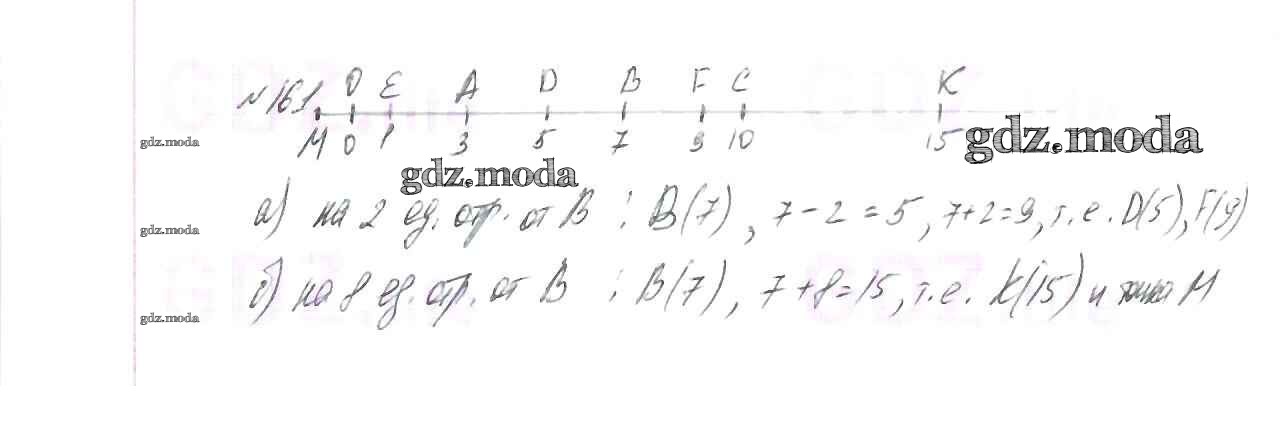 O E A D B F C K
№161.
M 0 1 3 5 7 9 10 15
gdz.moda
gdz.moda
gdz.moda
а) на 2 ед. отр. от B : B(7), 7-2=5, 7+2=9, т.е. D(5), F(9)
gdz.moda
б) на 8 ед. отр. от B : B(7), 7+8=15, т.е. K(15) и точка M
gdz.moda